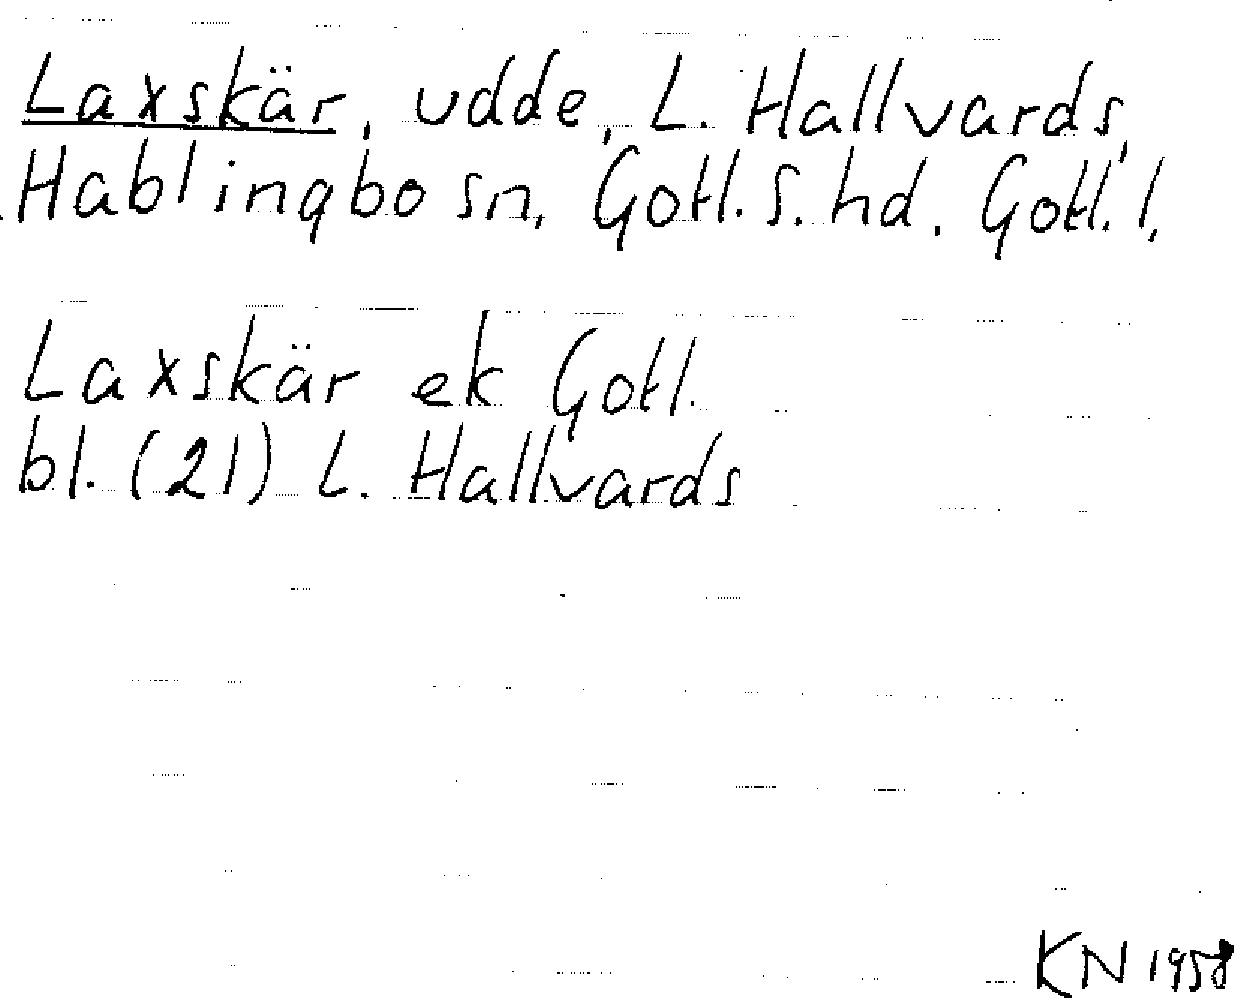 Laxskär, udde, L. Hallvards,
Hablingbo sn, Gotl. S. hd. Gotl. l.
Laxskär ek Gotl.
bl. (21) L. Hallvards
KN 1958